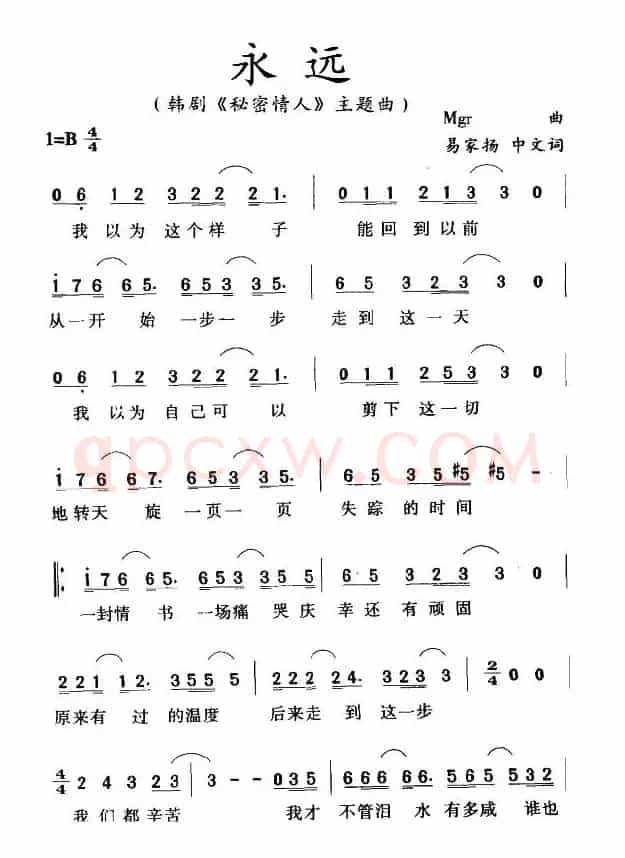 永 远
(韩剧《秘密情人》主题曲)
Mgr 曲
1=B 4/4
易家扬 中文词
0 6 1 2 3 2 2 2 2 1. | 0 1 1 2 1 3 3 0
我 以为 这个样 子 能回 到以前
i 7 6 6 6 5. 6 5 3 3 5. | 6 5 3 2 3 3 0
从一开 始 一步一 步 走到 这一天
0 6 1 2 3 2 2 2 2 1. | 0 1 1 2 5 3 3 0
我 以为 自己可 以 剪下 这一切
qpcxw.COM
i 7 6 6 6 7. 6 5 3 3 5. | 6 5 3 5 #5 #5 -
地转天 旋 一页一 页 失踪 的时间
i 7 6 6 6 5. 6 5 5 3 3 5 5 | 6 5 3 2 3 3 0
一封情 书 一场痛 哭庆 幸还 有顽固
2 2 1 1 2. 3 5 5 5 5 | 2 2 2 2 4. 3 2 3 3 | 2/4 0 0 |
原来有 过 的温度 后来走 到 这一步
4/4 2 4 3 2 3 | 3 - - 0 3 5 | 6 6 6 6 6. 6 6 6 5 6
我 们 都 辛苦 我才 不管泪 水 有多咸 谁也